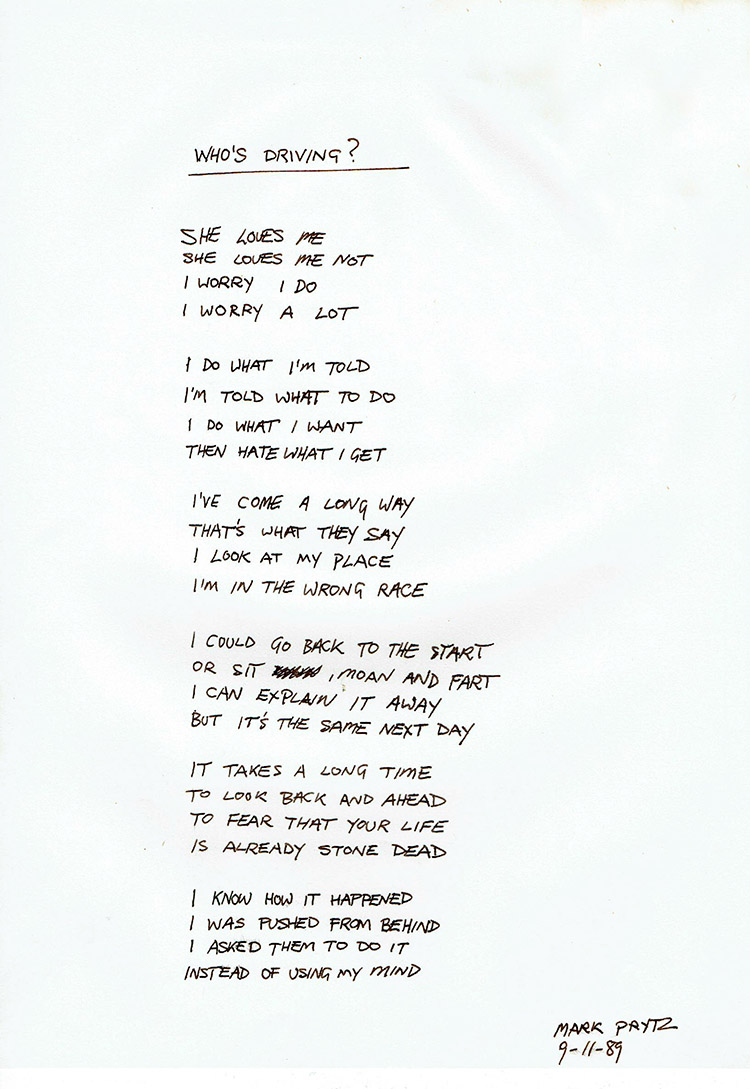 WHO'S DRIVING?
SHE LOVES ME
SHE LOVES ME NOT
I WORRY I DO
I WORRY A LOT
I DO WHAT I'M TOLD
I'M TOLD WHAT TO DO
I DO WHAT I WANT
THEN HATE WHAT I GET
I'VE COME A LONG WAY
THAT'S WHAT THEY SAY
I LOOK AT MY PLACE
I'M IN THE WRONG RACE
I COULD GO BACK TO THE START
OR SIT , MOAN AND FART
I CAN EXPLAIN IT AWAY
BUT IT'S THE SAME NEXT DAY
IT TAKES A LONG TIME
TO LOOK BACK AND AHEAD
TO FEAR THAT YOUR LIFE
IS ALREADY STONE DEAD
I KNOW HOW IT HAPPENED
I WAS PUSHED FROM BEHIND
I ASKED THEM TO DO IT
INSTEAD OF USING MY MIND
MARK PRYTZ
9-11-89